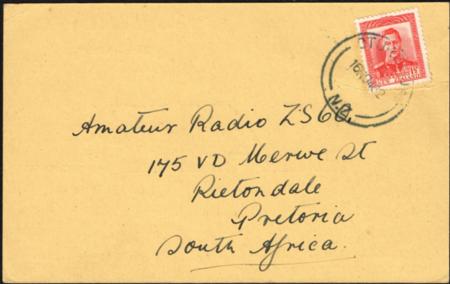 NEW ZEALAND
N.Z.
Amateur Radio ZS6G.
175 VD Merwe St
Rietondale
Pretoria
South Africa.